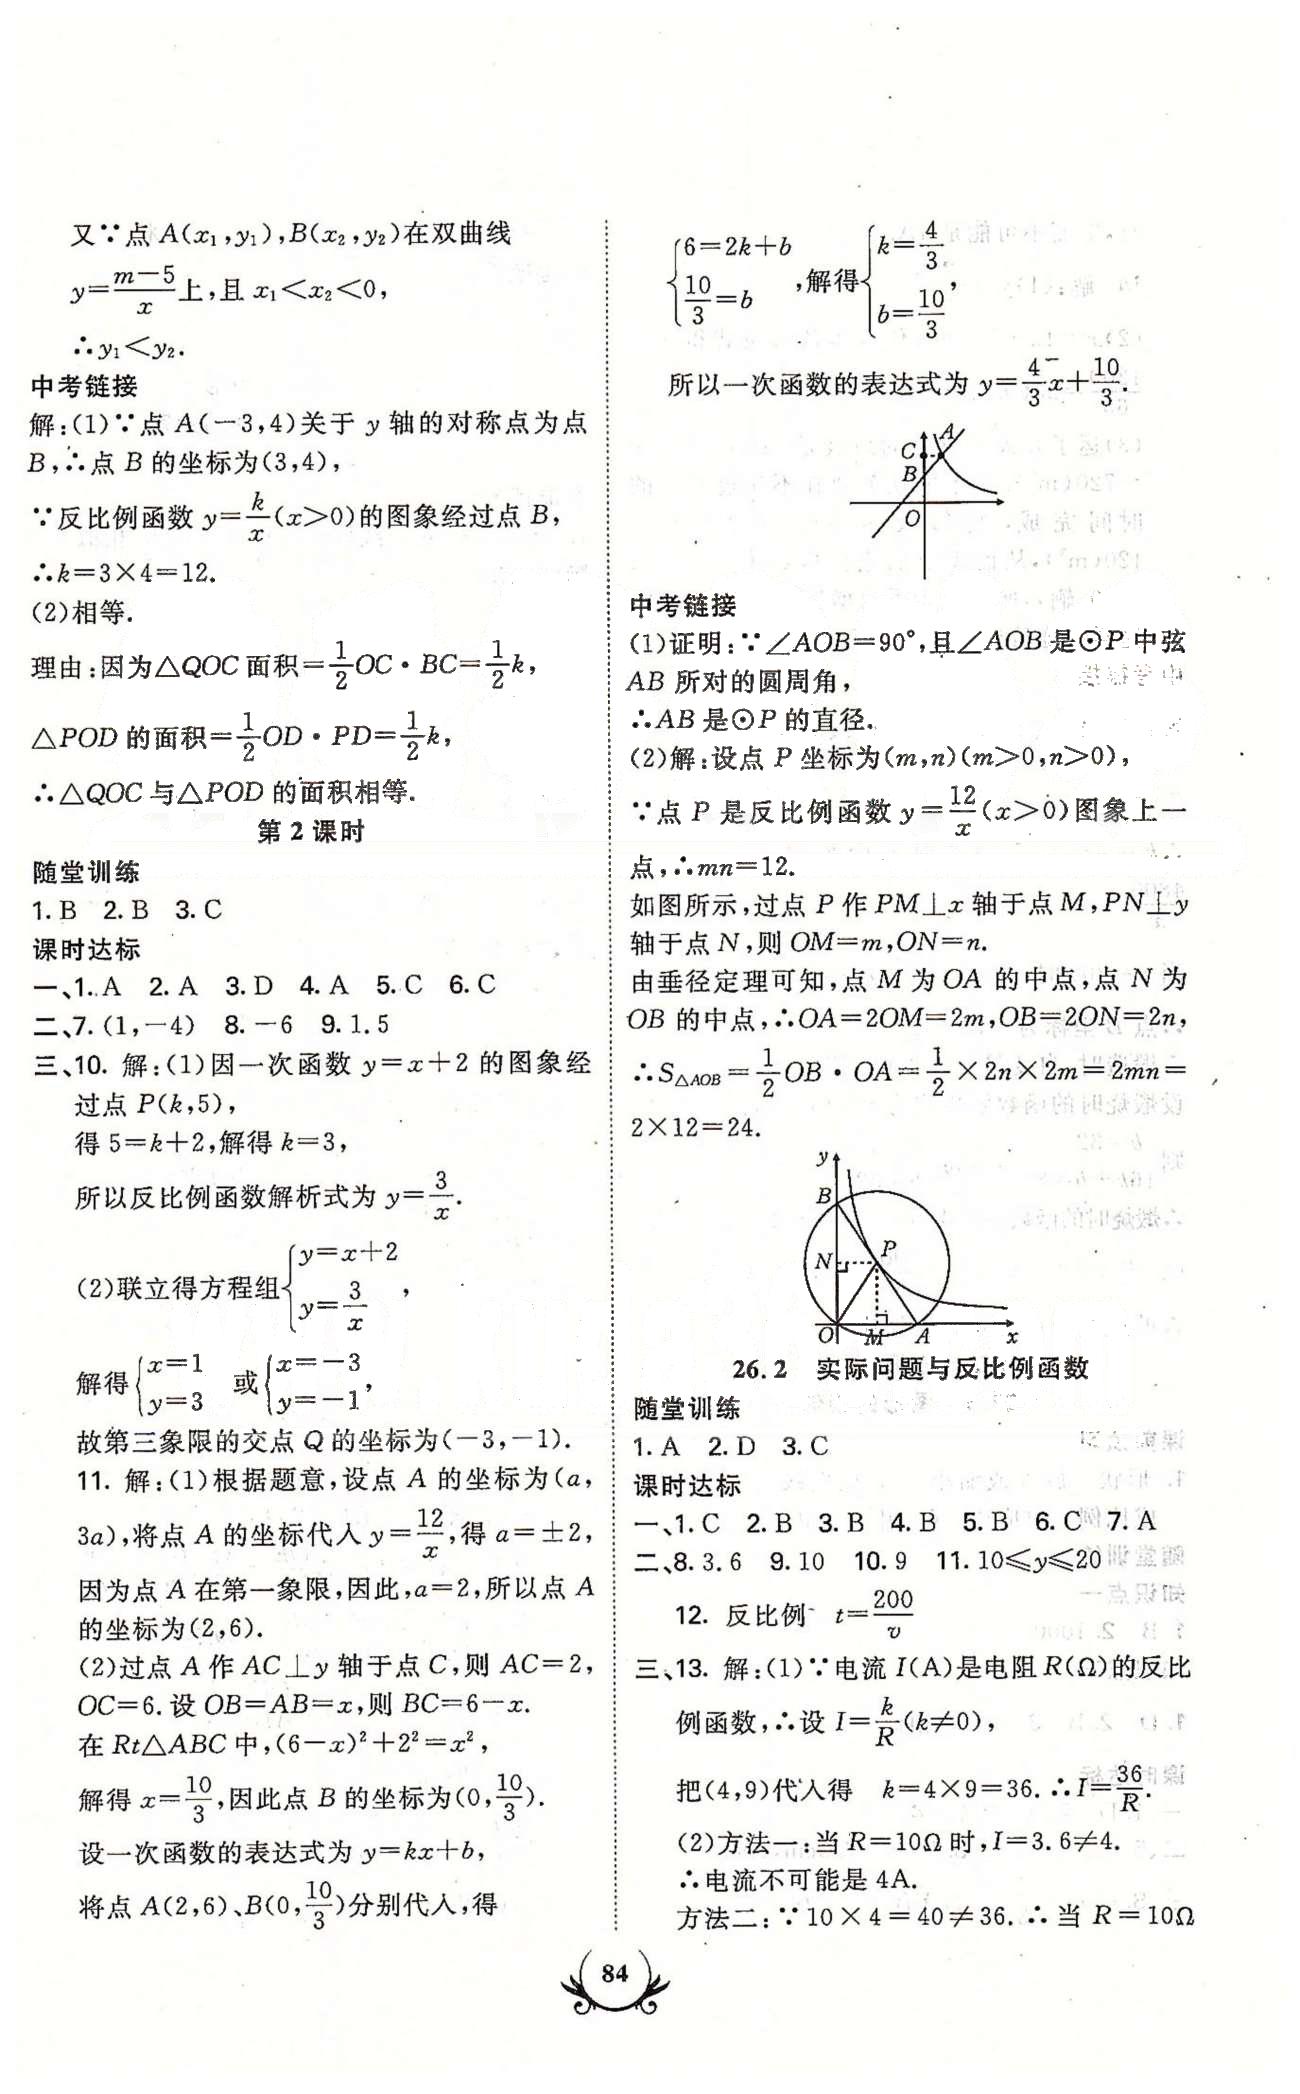 又∵点 A(x₁,y₁),B(x₂,y₂)在双曲线
y=(m-5)/x上,且 x₁<x₂<0,
∴y₁<y₂.
中考链接
解:(1)∵点 A(-3,4)关于 y 轴的对称点为点
B,∴点 B 的坐标为(3,4),
∵反比例函数 y=k/x(x>0)的图象经过点 B,
∴k=3×4=12.
(2)相等.
理由:因为△QOC 面积=1/2OC·BC=1/2k,
△POD 的面积=1/2OD·PD=1/2k,
∴△QOC 与△POD 的面积相等.
第 2 课时
随堂训练
1.B 2.B 3.C
课时达标
一、1.A 2.A 3.D 4.A 5.C 6.C
二、7.(1,-4) 8.-6 9.1.5
三、10. 解:(1)因一次函数 y=x+2 的图象经
过点 P(k,5),
得 5=k+2,解得 k=3,
所以反比例函数解析式为 y=3/x.
(2)联立得方程组{y=x+2 y=3/x,
解得{x=1 y=3 或{x=-3 y=-1,
故第三象限的交点 Q 的坐标为(-3,-1).
11. 解:(1)根据题意,设点 A 的坐标为(a,
3a),将点 A 的坐标代入 y=12/x,得 a=±2,
因为点 A 在第一象限,因此,a=2,所以点 A
的坐标为(2,6).
(2)过点 A 作 AC⊥y 轴于点 C,则 AC=2,
OC=6.设 OB=AB=x,则 BC=6-x.
在 Rt△ABC 中,(6-x)²+2²=x²,
解得 x=10/3,因此点 B 的坐标为(0,10/3).
设一次函数的表达式为 y=kx+b,
将点 A(2,6)、B(0,10/3)分别代入,得
{6=2k+b 10/3=b ,解得{k=4/3 b=10/3,
所以一次函数的表达式为 y=4/3x+10/3.
C A
B
O
中考链接
(1)证明:∵∠AOB=90°,且∠AOB 是⊙P 中弦
AB 所对的圆周角,
∴AB 是⊙P 的直径.
(2)解:设点 P 坐标为(m,n)(m>0,n>0),
∵点 P 是反比例函数 y=12/x(x>0)图象上一
点,∴mn=12.
如图所示,过点 P 作 PM⊥x 轴于点 M,PN⊥y
轴于点 N,则 OM=m,ON=n.
由垂径定理可知,点 M 为 OA 的中点,点 N 为
OB 的中点,∴OA=2OM=2m,OB=2ON=2n,
∴S△AOB=1/2OB·OA=1/2×2n×2m=2mn=
2×12=24.
y
B
N P
O M A x
26.2 实际问题与反比例函数
随堂训练
1.A 2.D 3.C
课时达标
一、1.C 2.B 3.B 4.B 5.B 6.C 7.A
二、8.3.6 9.10 10.9 11.10≤y≤20
12. 反比例 t=200/v
三、13. 解:(1)∵电流 I(A)是电阻 R(Ω)的反比
例函数,∴设 I=k/R(k≠0),
把(4,9)代入得 k=4×9=36.∴I=36/R.
(2)方法一:当 R=10Ω 时,I=3.6≠4.
∴电流不可能是 4A.
方法二:∵10×4=40≠36.∴当 R=10Ω
84